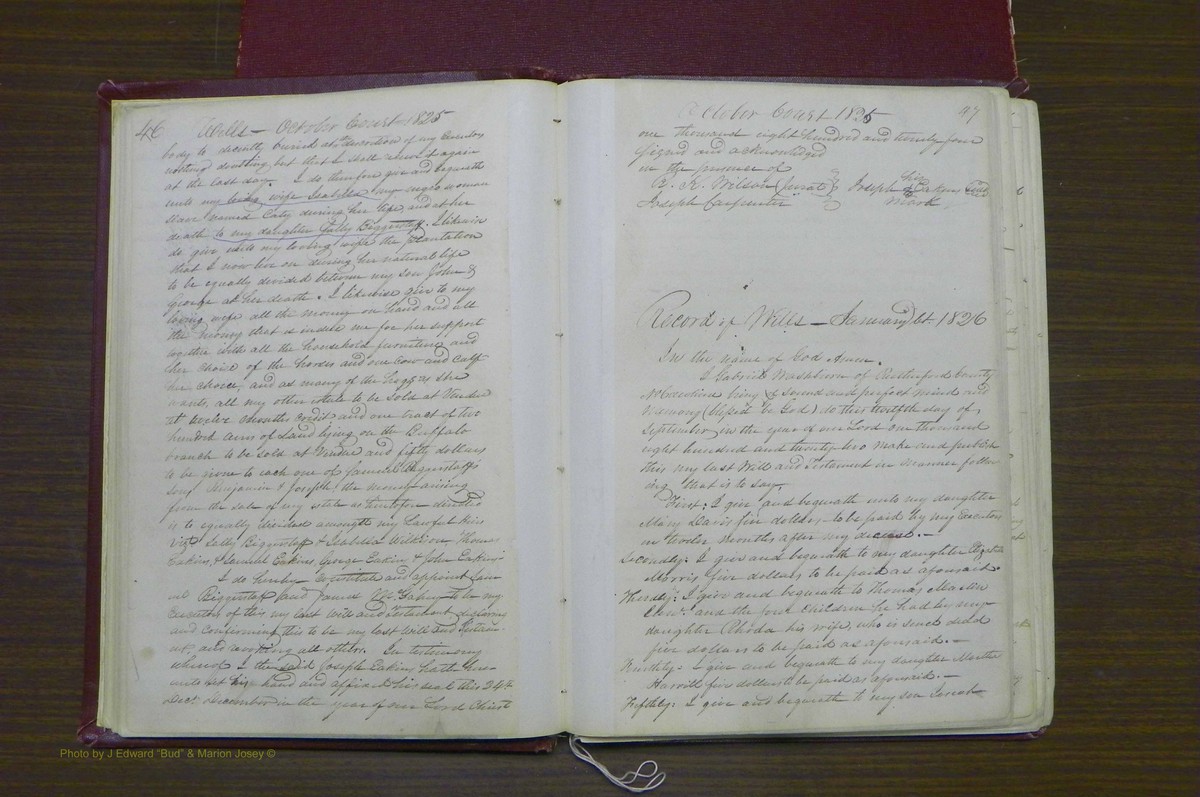 46 Wills — October Court — 1825
body to decently buried at discretion of my Executors
nothing doubting, but that I shall receive it again
at the last day. I do therefore give and bequeath
unto my loving wife Isabella my negro woman
slave named Caty during her life, and at her
death to my daughter Sally Biggerstaff. I likewise
do give unto my loving wife the plantation
that I now live on during her natural life
to be equally divided between my son John &
George at her death. I likewise give to my
loving wife all the money on hand and all
the money that is indebt me for her support
together with all the household furniture and
her choice of the horses and one cow and calf
her choice, and as many of the hogs as she
wants, all my other estate to be sold at Vendue
at twelve months credit and one tract of two
hundred acres of land lying on the Buffalo
branch to be sold at Vendue and fifty dollars
to be given to each one of Samuel Biggerstaff's
sons Benjamin & Joseph, the money arising
from the sale of my estate as therefore divided
is to equally divided amongst my Lawful heirs
viz Sally Biggerstaff & Isabella Wilkison Thomas
Eakins, & Samuel Eakins, George Eakins & John Eakins
I do hereby constitute and appoint Sam
uel Biggerstaff and James Eakins to be my
Executors of this my last will and testament
and confirming this to be my last will and testam
ent, and all others. In testimony
whereof I the said Joseph Eakins hath here
unto set his hand and affixed his seal this 24th
day December in the year of our Lord Christ
October Court 1825 47
one thousand eight hundred and twenty four
Signed and acknowledged
in the presence of
R. K. Wilson (jurat) Joseph his Eakins seal
Joseph Carpenter mark
Record of Wills — January Ct. 1826
In the name of God Amen.
I Gabriel Washburn of Rutherford county
N. Carolina being of sound and perfect mind and
Memory (blessed be God) do this twelfth day of
September in the year of our Lord one thousand
eight hundred and twenty two make and publish
this my last Will and Testament in manner follow
ing that is to say,
First: I give and bequeath unto my daughter
Mary Davis five dollars — to be paid by my Executors
in twelve months after my decease. —
Secondly: I give and bequeath to my daughter Elizabeth
Morris five dollars to be paid as aforesaid.
Thirdly: I give and bequeath to Thomas Martin
and the four children he had by my
daughter Rhoda his wife, who is since dead
five dollars to be paid as aforesaid. —
Fourthly: I give and bequeath to my daughter Martha
Harrill five dollars to be paid as aforesaid. —
Fifthly: I give and bequeath to my son
Photo by J Edward "Bud" & Marion Josey ©